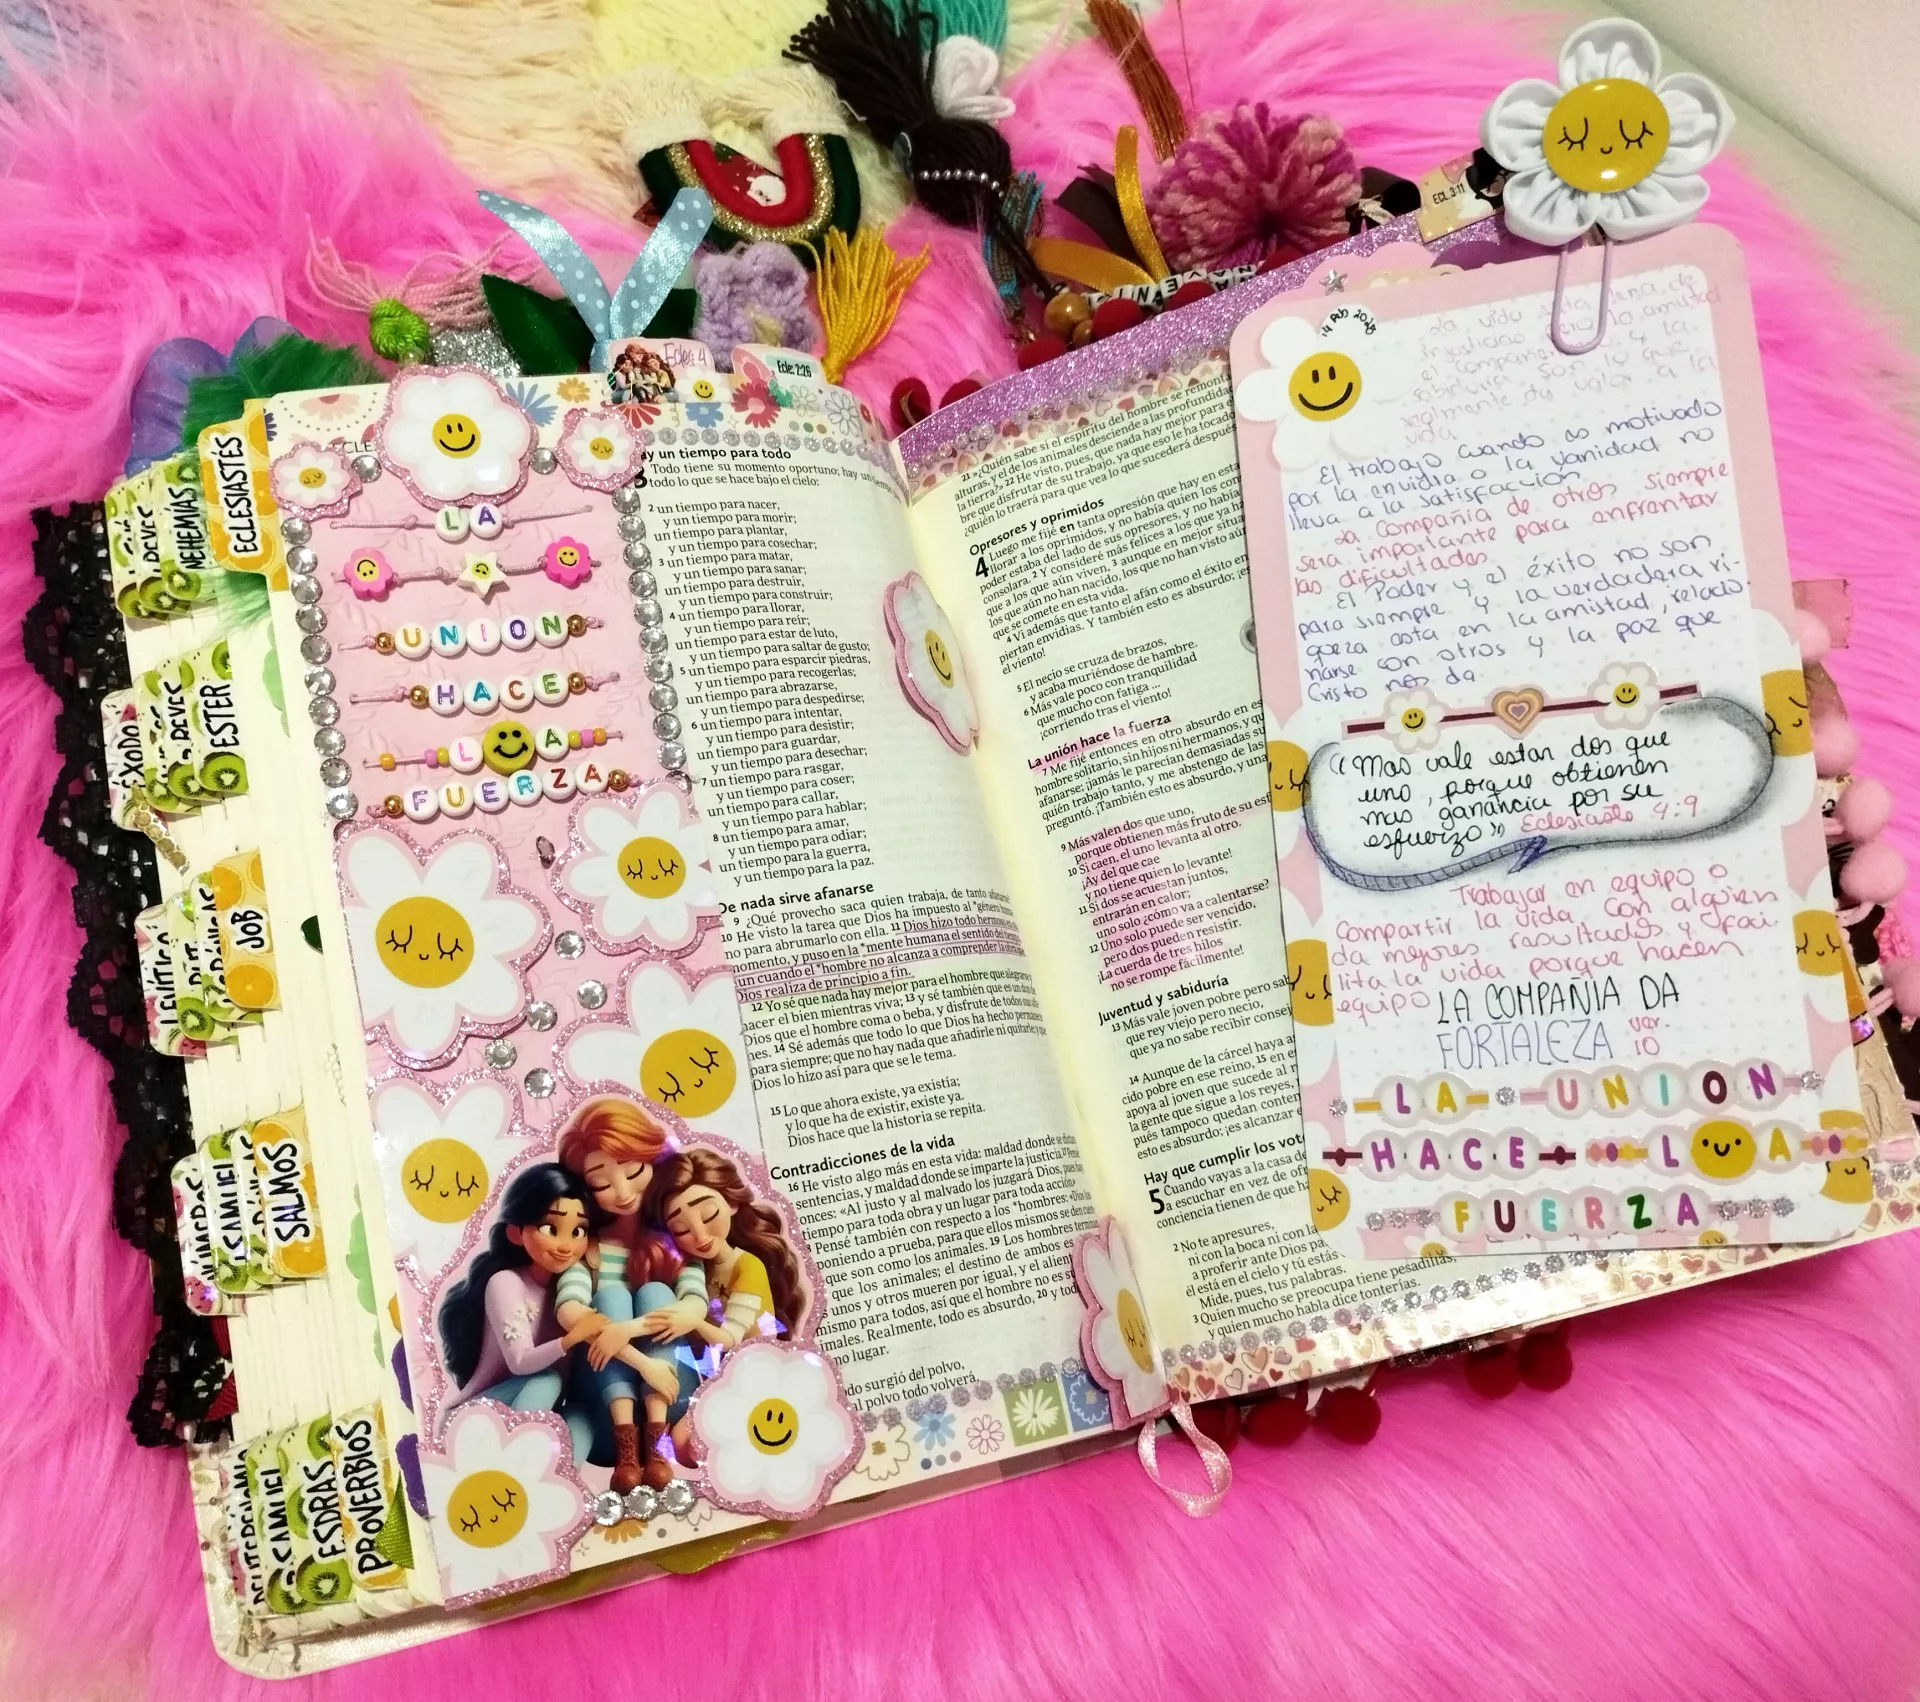 ECLESIASTÉS
NEHEMÍAS
ÉXODO
ESTER
JOB
SALMOS
ESDRAS
PROVERBIOS
Ecles 4
Ecle: 2:26
ECL 3:11
LA
UNION
HACE
LA
FUERZA
ay un tiempo para todo
3 Todo tiene su momento oportuno; hay un tiempo
todo lo que se hace bajo el cielo:
2 un tiempo para nacer,
y un tiempo para morir;
un tiempo para plantar,
y un tiempo para cosechar;
3 un tiempo para matar,
y un tiempo para sanar;
un tiempo para destruir,
y un tiempo para construir;
4 un tiempo para llorar,
y un tiempo para reír;
un tiempo para estar de luto,
y un tiempo para saltar de gusto;
5 un tiempo para esparcir piedras,
y un tiempo para recogerlas;
un tiempo para abrazarse,
y un tiempo para despedirse;
6 un tiempo para intentar,
y un tiempo para desistir;
un tiempo para guardar,
y un tiempo para desechar;
7 un tiempo para rasgar,
y un tiempo para coser;
un tiempo para callar,
y un tiempo para hablar;
8 un tiempo para amar,
y un tiempo para odiar;
un tiempo para la guerra,
y un tiempo para la paz.
De nada sirve afanarse
9 ¿Qué provecho saca quien trabaja, de tanto afanarse?
10 He visto la tarea que Dios ha impuesto al *género
no para abrumarlo con ella. 11 Dios hizo todo hermoso
momento, y puso en la *mente humana el sentido del
un cuando el *hombre no alcanza a comprender la
Dios realiza de principio a fin.
12 Yo sé que nada hay mejor para el hombre que alegrarse
hacer el bien mientras viva; 13 y sé también que es un
Dios que el hombre coma o beba, y disfrute de todos
nes. 14 Sé además que todo lo que Dios ha hecho permanece
para siempre; que no hay nada que añadirle ni quitarle;
Dios lo hizo así para que se le tema.
15 Lo que ahora existe, ya existía;
y lo que ha de existir, existe ya.
Dios hace que la historia se repita.
Contradicciones de la vida
16 He visto algo más en esta vida: maldad donde se
sentencias, y maldad donde se imparte la justicia. 17
onces: «Al justo y al malvado los juzgará Dios, pues
tiempo para toda obra y un lugar para toda acción»
Pensé también con respecto a los *hombres:
poniendo a prueba, para que ellos mismos se den
que son como los animales. 19 Los hombres
que los animales; el destino de ambos es
unos y otros mueren por igual, y el
mismo para todos, así que el hombre no es
imales. Realmente, todo es absurdo, 20 y
no lugar.
do surgió del polvo,
al polvo todo volverá,
21 »¿Quién sabe si el espíritu del hombre se remonta
alturas, y el de los animales desciende a las profundidades
la tierra?» 22 He visto, pues, que nada hay mejor para
bre que disfrutar de su trabajo, ya que eso le ha tocado
¿quién lo traerá para que vea lo que sucederá después
Opresores y oprimidos
4 Luego me fijé en tanta opresión que hay en esta
llorar a los oprimidos, y no había quien los
poder estaba del lado de sus opresores, y no había
consolara. 2 Y consideré más felices a los que ya
que a los que aún viven, 3 aunque en mejor
los que aún no han nacido, los que no han visto aún
que se comete en esta vida.
4 Vi además que tanto el afán como el éxito en
piertan envidias. Y también esto es absurdo;
el viento!
5 El necio se cruza de brazos,
y acaba muriéndose de hambre.
6 Más vale poco con tranquilidad
que mucho con fatiga ...
¡corriendo tras el viento!
La unión hace la fuerza
7 Me fijé entonces en otro absurdo en
hombre solitario, sin hijos ni hermanos, y
afanarse; ¡jamás le parecían demasiadas
quién trabajo tanto, y me abstengo de las
preguntó. ¡También esto es absurdo, y una
9 Más valen dos que uno,
porque obtienen más fruto de su
10 Si caen, el uno levanta al otro.
¡Ay del que cae
y no tiene quien lo levante!
11 Si dos se acuestan juntos,
entrarán en calor;
uno solo ¿cómo va a calentarse?
12 Uno solo puede ser vencido,
pero dos pueden resistir.
¡La cuerda de tres hilos
no se rompe fácilmente!
Juventud y sabiduría
13 Más vale joven pobre pero
que rey viejo pero necio,
que ya no sabe recibir
14 Aunque de la cárcel haya
cido pobre en ese reino, 15 en
apoya al joven que sucede al
la gente que sigue a los reyes,
pués tampoco quedan
esto es absurdo; ¡es alcanzar
Hay que cumplir los
5 Cuando vayas a la casa de
a escuchar en vez de
conciencia tienen de que
2 No te apresures,
ni con la boca ni con la
a proferir ante Dios
él está en el cielo y tú estás
Mide, pues, tus palabras.
3 Quien mucho se preocupa tiene pesadillas,
y quien mucho habla dice tonterías.
La vida esta llena de
injusticias pero la amistad
el compañerismo y la
sabiduria son lo que
realmente da valor a la
vida
El trabajo cuando es motivado
por la envidia o la vanidad no
lleva a la satisfacción
La compañia de otros siempre
sera importante para enfrentar
las dificultades
El Poder y el éxito no son
para siempre y la verdadera ri-
queza esta en la amistad, relacio
narse con otros y la paz que
Cristo nos da.
"Mas vale estar dos que
uno, porque obtienen
mas ganancia por su
esfuerzo" Eclesiaste 4:9
Trabajar en equipo o
compartir la vida con alguien
da mejores resultados y faci
lita la vida porque hacen
equipo LA COMPAÑIA DA
FORTALEZA ver. 10
LA UNION
HACE LA
FUERZA